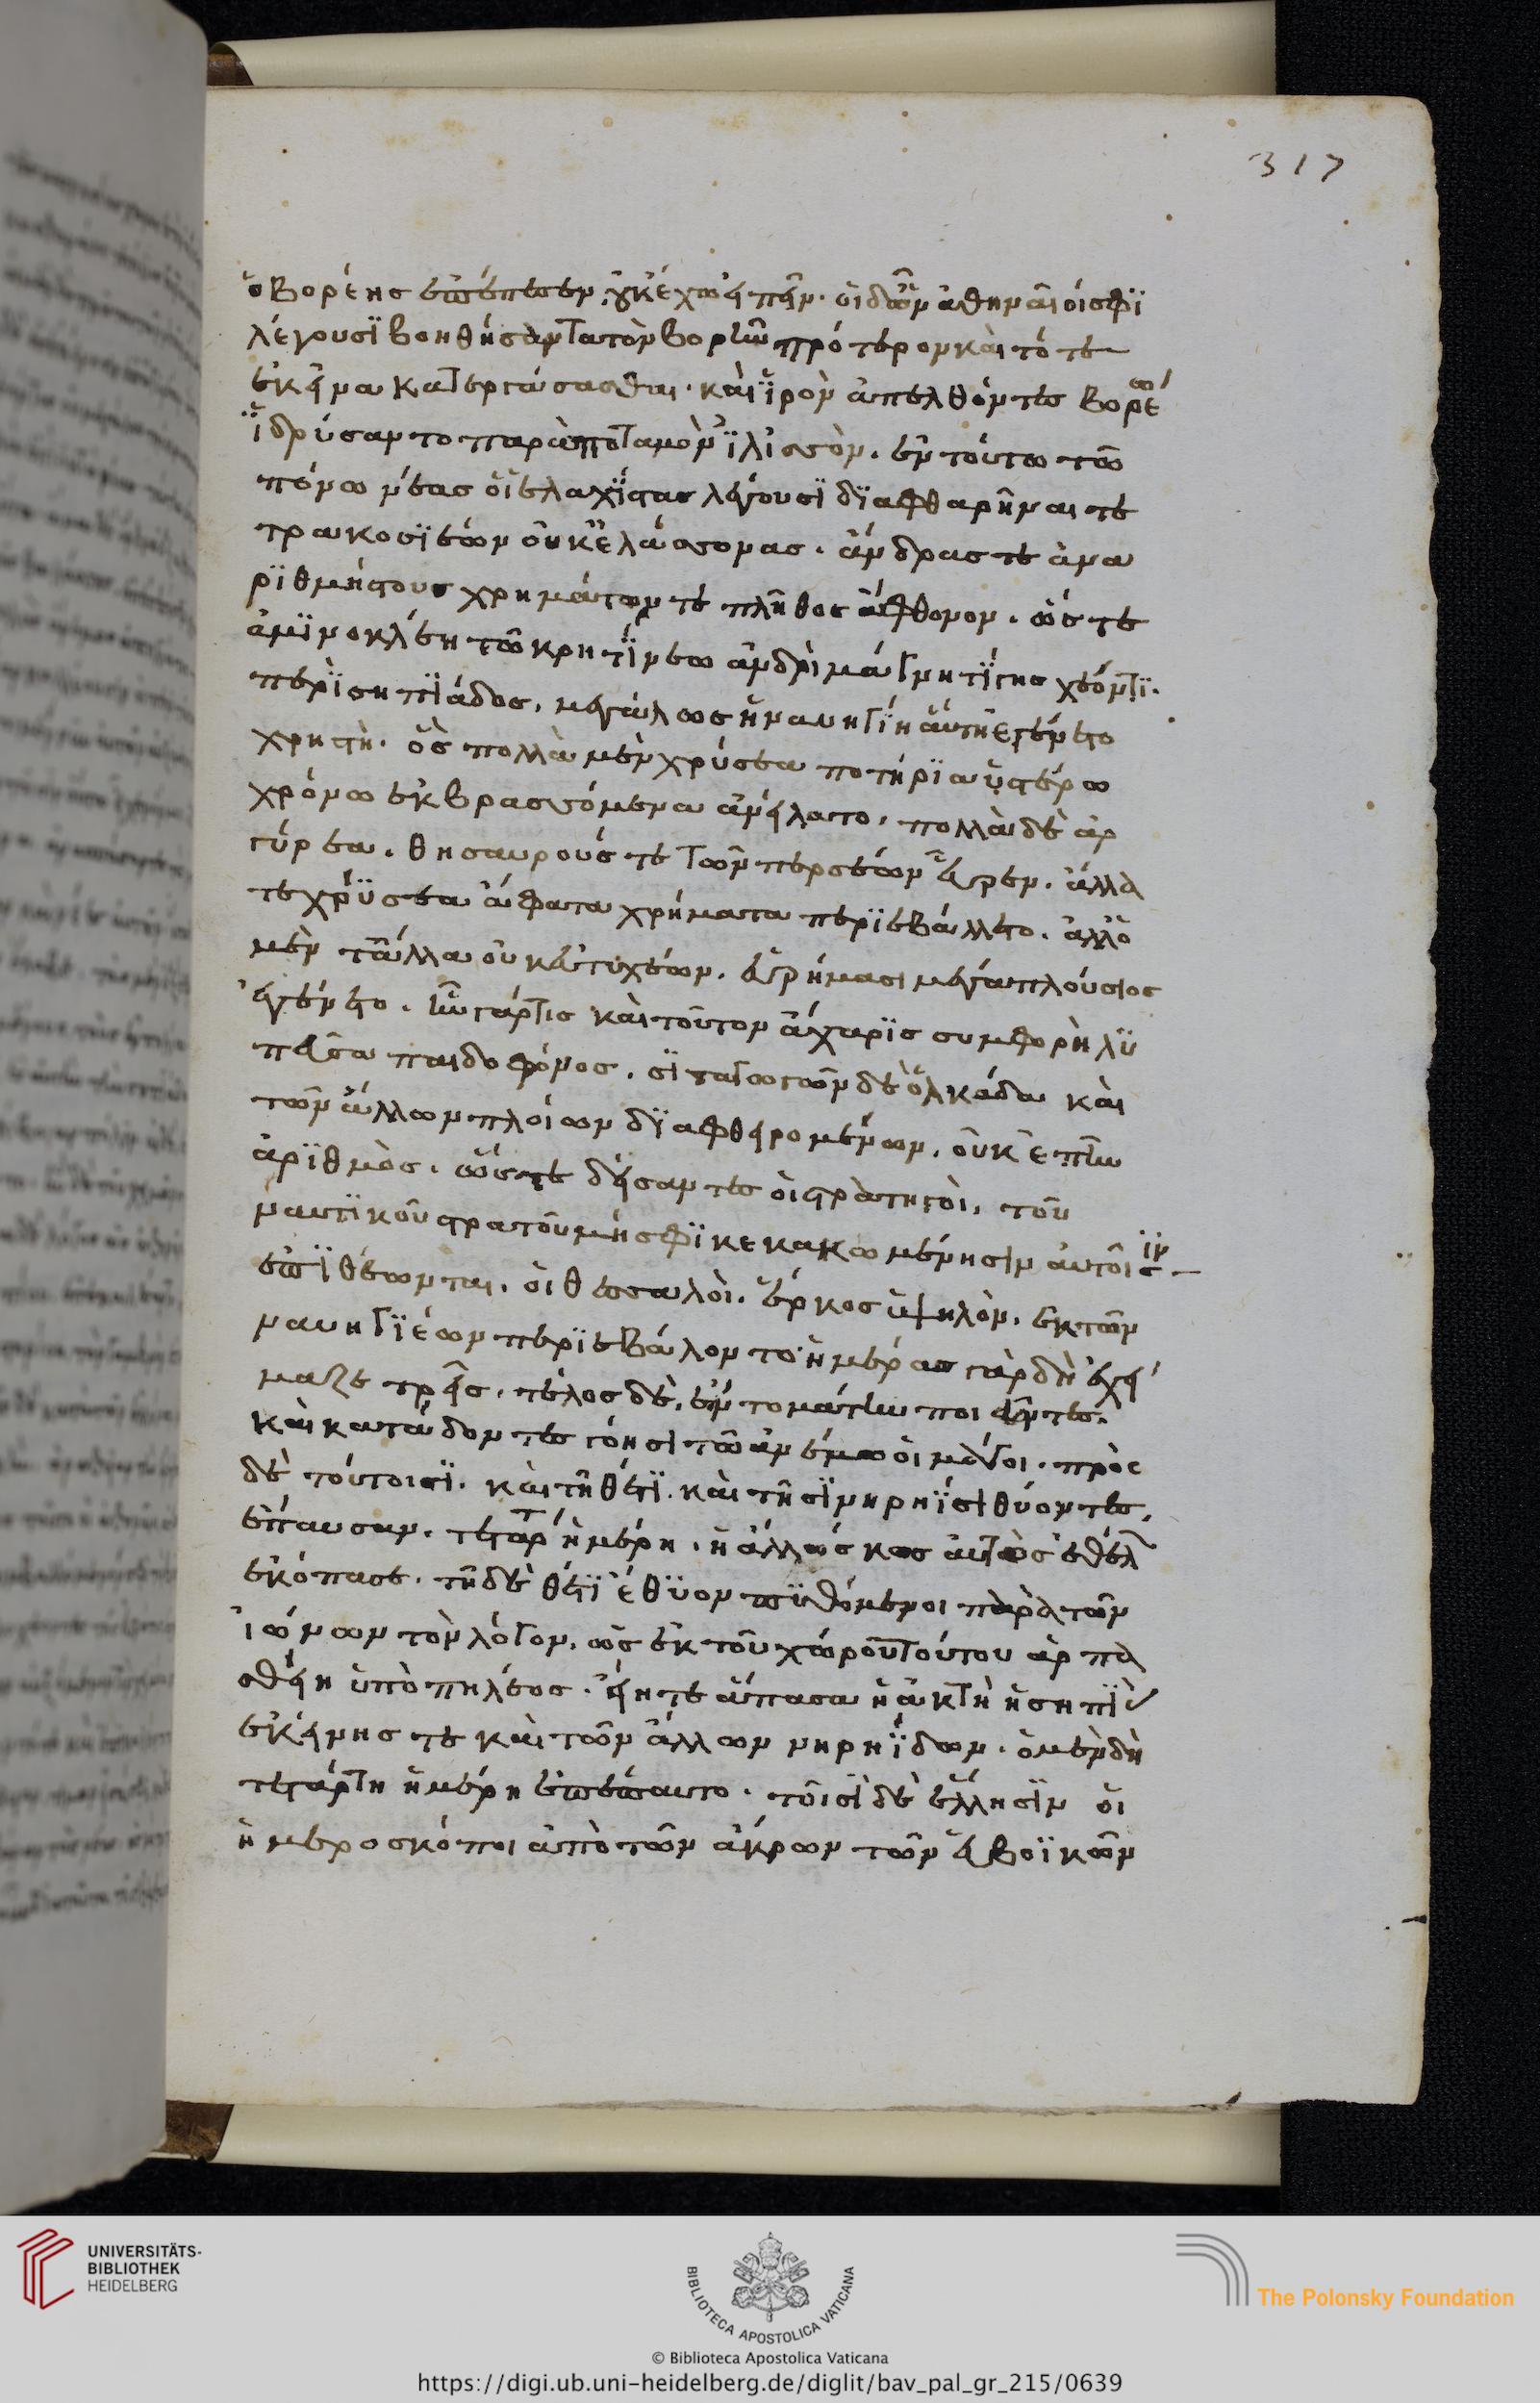 317
ὁ βορέης ἐπέπεσεν, οὐκ ἔχω εἰπεῖν. οἱ δ' ὦν ἀθηναῖοι σφϊ
λέγουσϊ βοηθήσαντα τὸν βορῆν πρότερον καὶ τότε
ἐκεῖνα κατεργάσασθαι. καὶ ἱρὸν ἀπελθόντες βορέω
ἱδρύσαντο παρὰ ποταμὸν ἰλισσὸν. ἐν τούτω τῶ
πόνω νέας οἳ ἐλαχίστας λέγουσϊ δϊαφθαρῆναι τε
τρακοσϊέων οὐκ ἐλάσσονας. ἄνδρας τε ἀνα
ρϊθμήτους χρημάτων τε πλῆθος ἄφθονον. ὥστε
ἀμϊνοκλέη τῶ κρητίνεω ἀνδρὶ μάγνητϊ γηοχέοντϊ.
περὶ σηπϊάδος, μεγάλως ἡ ναυηγίη αὕτη ἐγένετο
χρηστὴ. ὃς πολλὰ μὲν χρύσεα ποτήρϊα ὑστέρω
χρόνω ἐκβρασσόμενα ἀνείλατο, πολλὰ δὲ ἀρ
γύρεα. θησαυρούς τε τῶν περσέων εὗρεν. ἄλλα
τε χρύσεα ἄφατα χρήματα περϊεβάλλετο. ἀλλ' ὁ
μὲν τἆλλα οὐκ εὐτυχέων, εὑρήμασι μέγα πλούσιος
ἐγένετο. ἦν γάρ τις καὶ τοῦτον ἄχαρϊς συμφορὴ λυ
πεῦσα παιδοφόνος. σϊταγωγῶν δὲ ὁλκάδων καὶ
τῶν ἄλλων πλοίων δϊαφθειρομένων, οὐκ ἐπῆν
ἀρϊθμὸς. ὥστε δείσαντες οἱ στρατηγοὶ, τοῦ
ναυτϊκοῦ στρατοῦ μή σφϊ κεκακωμένησιν αὐτοῖσιν
ἐπϊθέωνται, οἱ θεσσαλοὶ. ἕρκος ὑψηλὸν, ἐκ τῶν
ναυηγϊέων περϊεβάλοντο· ἡμέρας γὰρ δὴ ἐχεί
μαζε τρεῖς. τέλος δὲ, ἐντομά τε ποιεῦντες.
καὶ καταείδοντες γόησι τῶ ἀνέμω οἱ μάγοι. πρὸς
δὲ τούτοισϊ. καὶ τῆ θέτϊ. καὶ τῆσϊ νηρηΐσι θύοντες,
ἔπαυσαν. τετάρτ ἡμέρη. ἢ ἄλλώς κως αὐτὸς ἐθέλων
ἐκόπασε. τῆ δὲ θέτϊ ἔθϋον πϋθόμενοι παρὰ τῶν
ἰώνων τὸν λόγον, ὡς ἐκ τοῦ χώρου τούτου ἁρπα
σθείη ὑπὸ πηλέος. εἴη τε ἅπασα ἡ ἀκτὴ ἡ σηπϊὰς
ἐκείνης τε καὶ τῶν ἄλλων νηρηΐδων. ὁ μὲν δὴ
τετάρτη ἡμέρη ἐπέπαυτο. τοῖσϊ δὲ ἕλλησϊν οἱ
ἡμεροσκόποι ἀπὸ τῶν ἄκρων τῶν εὐβοϊκῶν
UNIVERSITÄTS-
BIBLIOTHEK
HEIDELBERG
BIBLIOTECA APOSTOLICA VATICANA
The Polonsky Foundation
© Biblioteca Apostolica Vaticana
https://digi.ub.uni-heidelberg.de/diglit/bav_pal_gr_215/0639